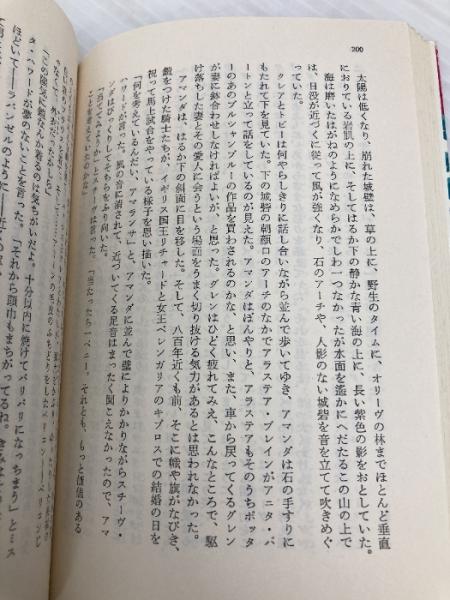 200
太陽は低くなり、崩れた城壁は、草の上に、野生のタイムに、オリーヴの林までほとんど垂直
におりている岩肌の上に、そしてはるか下の静かな青い海の上に、長い紫色の影をおとしていた。
海は磨いたはがねのようになめらかでしわ一つなかったが水面を遥かにへだたるこの山の上で
は、日没が近づくに従って風が強くなり、石のアーチや、人影のない城砦を音を立てて吹きめぐ
っていた。
クレアとトビーは何やらしきりに話し合いながら並んで歩いてゆき、アマンダは石の手すりに
もたれて下を見ていた。下の城砦の朝顔口のアーチのなかでアラステア・ブレインがアニタ・バ
ートンと立って話をしているのが見えた。アマンダはぼんやりと、アラステアもそのうちポッタ
ーのあのブルシャンブルーの作品を買わされるのかな、と思い、また、車から戻ってくるグレン
が妻に鉢合わせしなければよいが、と思った。グレンはひどく疲れてみえ、こんなところで、駆
け落ちした妻とその愛人に会うという場面をうまく切り抜ける気力があるとは思われなかった。
アマンダは、はるか下の斜面に目を移した。そして、八百年近くも前、そこに幟や旗がなびき、
鎧をつけた騎士たちが、イギリス国王リチャードと女王ベレンガリアのキプロスでの結婚の日を
祝って馬上試合をやっている様子を思い描いた。
「何を考えているんだい、アマランサ」と、アマンダに並んで壁によりかかりながらスチーヴ・
ハワードが言った。風の音に消されて、近づいてくる足音はまったく聞こえなかったので、アマ
ンダはびっくりしてそちらをふり向いた。
「当たったら一ペニー。それとも、もっと価値のある
ことを考えて
「この陽気に鎧さんか着るのは気ちがいだよ。十分以内に焼けてパリパリになっちまう」とミス
タ・ハワードが夢のないことを言った。「それから頭巾もまちがってるね。
ほどいて――ラパンゼルのように――